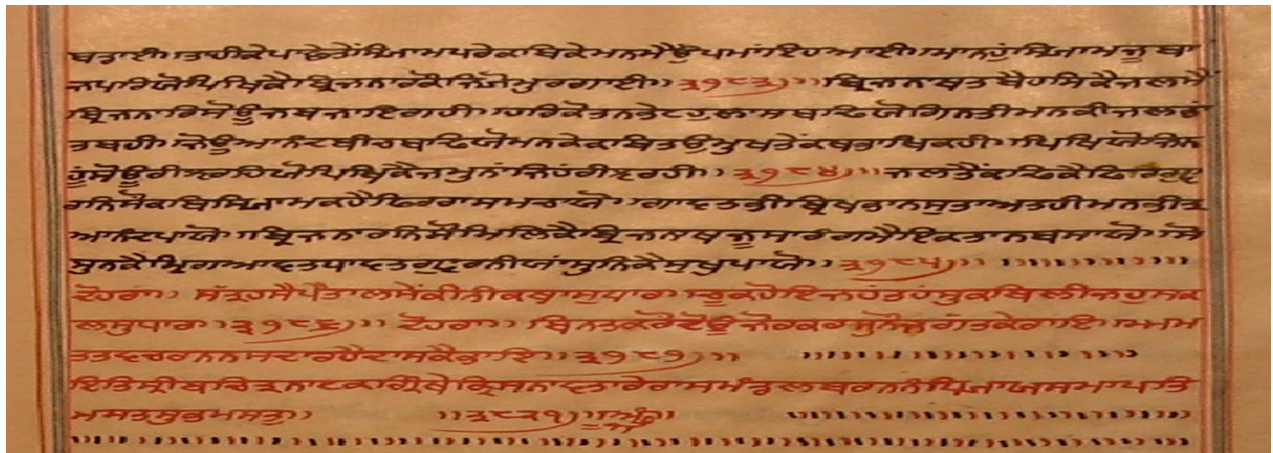 ਬਤਾਈ॥ ਤਾਹੀ ਕੇ ਪਾਛੇ ਤੇ ਸ੍ਯਾਮ ਪਰੇ ਕਬਿ ਕੇ ਮਨ ਮੈ ਉਪਮਾ ਇਹ ਆਈ॥ ਮਾਨਹੁ ਸ੍ਯਾਮ ਜੂ ਬਾ
ਜ ਪਰਿਯੋ ਪਿਖਿ ਕੈ ਬ੍ਰਿਜ ਨਾਰ ਕੋ ਜਿਯੋ ਮੁਰਗਾਈ॥ ੩੧੮੩॥ ਬ੍ਰਿਜ ਨਾਥ ਤਬੈ ਧਸਿ ਕੈ ਜਲ ਮੈ
ਬ੍ਰਿਜ ਨਾਰਿ ਸੋਊ ਤਬ ਜਾਇ ਗਹੀ॥ ਹਰਿ ਕੋ ਤਨ ਭੇਟ ਹੁਲਾਸ ਬਾਢਿਯੋ ਗਿਨਤੀ ਮਨ ਕੀ ਜਲ ਭਾਂ
ਤ ਬਹੀ॥ ਜੋਊ ਆਨੰਦ ਬੀਚ ਬਾਢਿਯੋ ਮਨ ਕੇ ਕਬਿ ਤਉ ਮੁਖ ਤੇ ਕਥ ਭਾਖਿ ਕਹੀ॥ ਪਿਖਿਯੋ ਜਿਨ
ਹੂੰ ਸੋਊ ਰੀਝ ਰਹਿਯੋ ਪਿਖਿ ਕੈ ਜਮੁਨਾ ਜਿਹ ਰੀਝ ਰਹੀ॥ ੩੧੮੪॥ ਜਲ ਤੈ ਕਢਿ ਕੈ ਫਿਰਿ ਗੁਵ
ਰਨਿ ਸੌ ਕਬਿ ਸ੍ਯਾਮ ਕਹੈ ਫਿਰਿ ਰਾਸ ਮਚਾਯੋ॥ ਗਾਵਤ ਭੀ ਬ੍ਰਿਖਭਾਨ ਸੁਤਾ ਅਤ ਹੀ ਮਨ ਭੀਤ
ਆਨੰਦ ਪਾਯੋ॥ ਬ੍ਰਿਜ ਨਾਰਨਿ ਸੌ ਮਿਲਿ ਕੈ ਬ੍ਰਿਜ ਨਾਥ ਜੂ ਸਾਰੰਗ ਮੈ ਇਕ ਤਾਨ ਬਸਾਯੋ॥ ਸੋ
ਸੁਨ ਕੈ ਮ੍ਰਿਗ ਆਵਤ ਧਾਵਤ ਗੁਵਰਨੀਯਾਂ ਸੁਨਿ ਕੈ ਸੁਖੁ ਪਾਯੋ॥ ੩੧੮੫॥
ਦੋਹਰਾ॥ ਸੱਤ੍ਰਹ ਸੈ ਪੈਤਾਲ ਮੈ ਕੀਨੀ ਕਥਾ ਸੁਧਾਰ॥ ਚੂਕ ਹੋਇ ਜਹ ਤਹ ਸੁ ਕਬਿ ਲੀਜਹੁ ਸਕ
ਲ ਸੁਧਾਰ॥ ੩੧੮੬॥ ਦੋਹਰਾ॥ ਬਿਨਤ ਕਰੋ ਦੋਊ ਜੋਰ ਕਰ ਸੁਨੋ ਜਗਤ ਕੇ ਰਾਇ॥ ਮੋ ਮਸ
ਤਕ ਤਵ ਚਰਨ ਨ ਸਦਾ ਰਹੈ ਦਾਸ ਕੈ ਭਾਇ॥ ੩੧੮੭॥
ਇਤਿ ਸ੍ਰੀ ਬਚਿਤ੍ਰ ਨਾਟਕ ਗ੍ਰੰਥੇ ਕ੍ਰਿਸਨਾਵਤਾਰੇ ਰਾਸ ਮੰਡਲ ਬਰਨਨੰ ਧਿਆਯ ਸਮਾਪਤਿ
ਮਸਤ ਸੁਭ ਮਸਤੁ॥